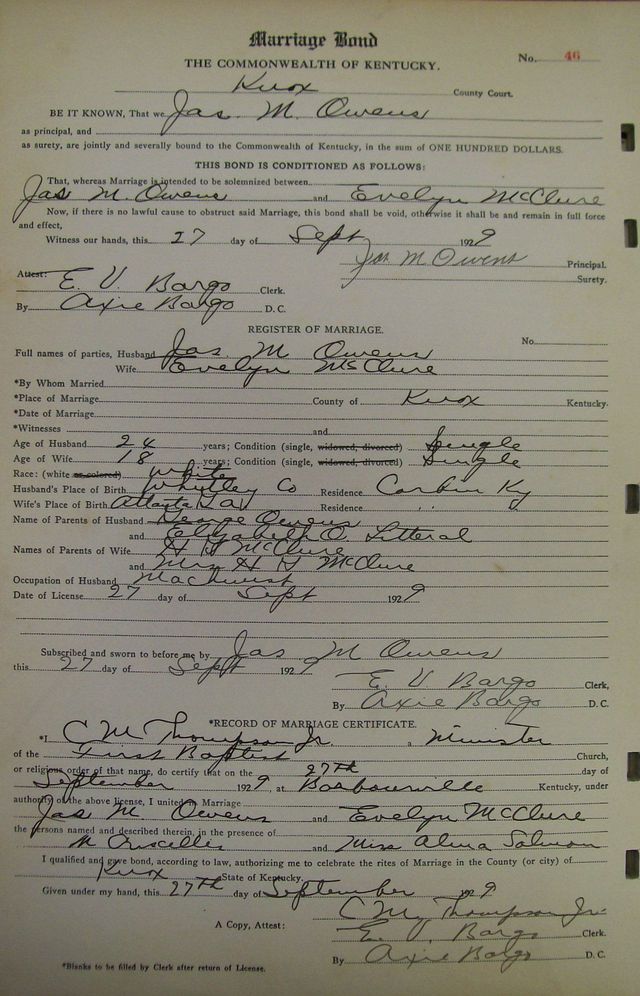 Marriage Bond
No. 46
THE COMMONWEALTH OF KENTUCKY.
Knox County Court.
BE IT KNOWN, That we Jas. M. Owens
as principal, and
as surety, are jointly and severally bound to the Commonwealth of Kentucky, in the sum of ONE HUNDRED DOLLARS.
THIS BOND IS CONDITIONED AS FOLLOWS:
That, whereas Marriage is intended to be solemnized between
Jas M. Owens and Evelyn McClure
Now, if there is no lawful cause to obstruct said Marriage, this bond shall be void, otherwise it shall be and remain in full force
and effect,
Witness our hands, this 27 day of Sept 1929
Jas M Owens Principal.
Surety.
Attest: E. V. Bargo Clerk.
By Axie Bargo D. C.
REGISTER OF MARRIAGE.
No.
Full names of parties, Husband Jas. M Owens
Wife Evelyn McClure
*By Whom Married
*Place of Marriage County of Knox Kentucky.
*Date of Marriage
*Witnesses and
Age of Husband 24 years; Condition (single, widowed, divorced) Single
Age of Wife 18 years; Condition (single, widowed, divorced) Single
Race: (white or colored) white
Husband's Place of Birth Whitley Co Residence Corbin Ky
Wife's Place of Birth Atlanta Ga Residence " "
Name of Parents of Husband George Owens
and Elizabeth O. Litteral
Names of Parents of Wife H H McClure
and Mrs H H McClure
Occupation of Husband Machinist
Date of License 27 day of Sept 1929
Subscribed and sworn to before me by Jas M Owens
this 27 day of Sept 1929
E. V Bargo Clerk,
By Axie Bargo D. C.
*RECORD OF MARRIAGE CERTIFICATE.
*I C M Thompson Jr. , Minister
of the First Baptist Church,
or religious order of that name, do certify that on the 27th day of
September 1929, at Barbourville Kentucky, under
authority of the above license, I united in Marriage
Jas M. Owens and Evelyn McClure
the persons named and described therein, in the presence of
and Miss Alma Salmon
I qualified and gave bond, according to law, authorizing me to celebrate the rites of Marriage in the County (or city) of
Knox State of Kentucky.
Given under my hand, this 27th day of September 1929
C M Thompson Jr.
A Copy, Attest: E. V. Bargo Clerk.
By Axie Bargo D. C.
*Blanks to be filled by Clerk after return of License.